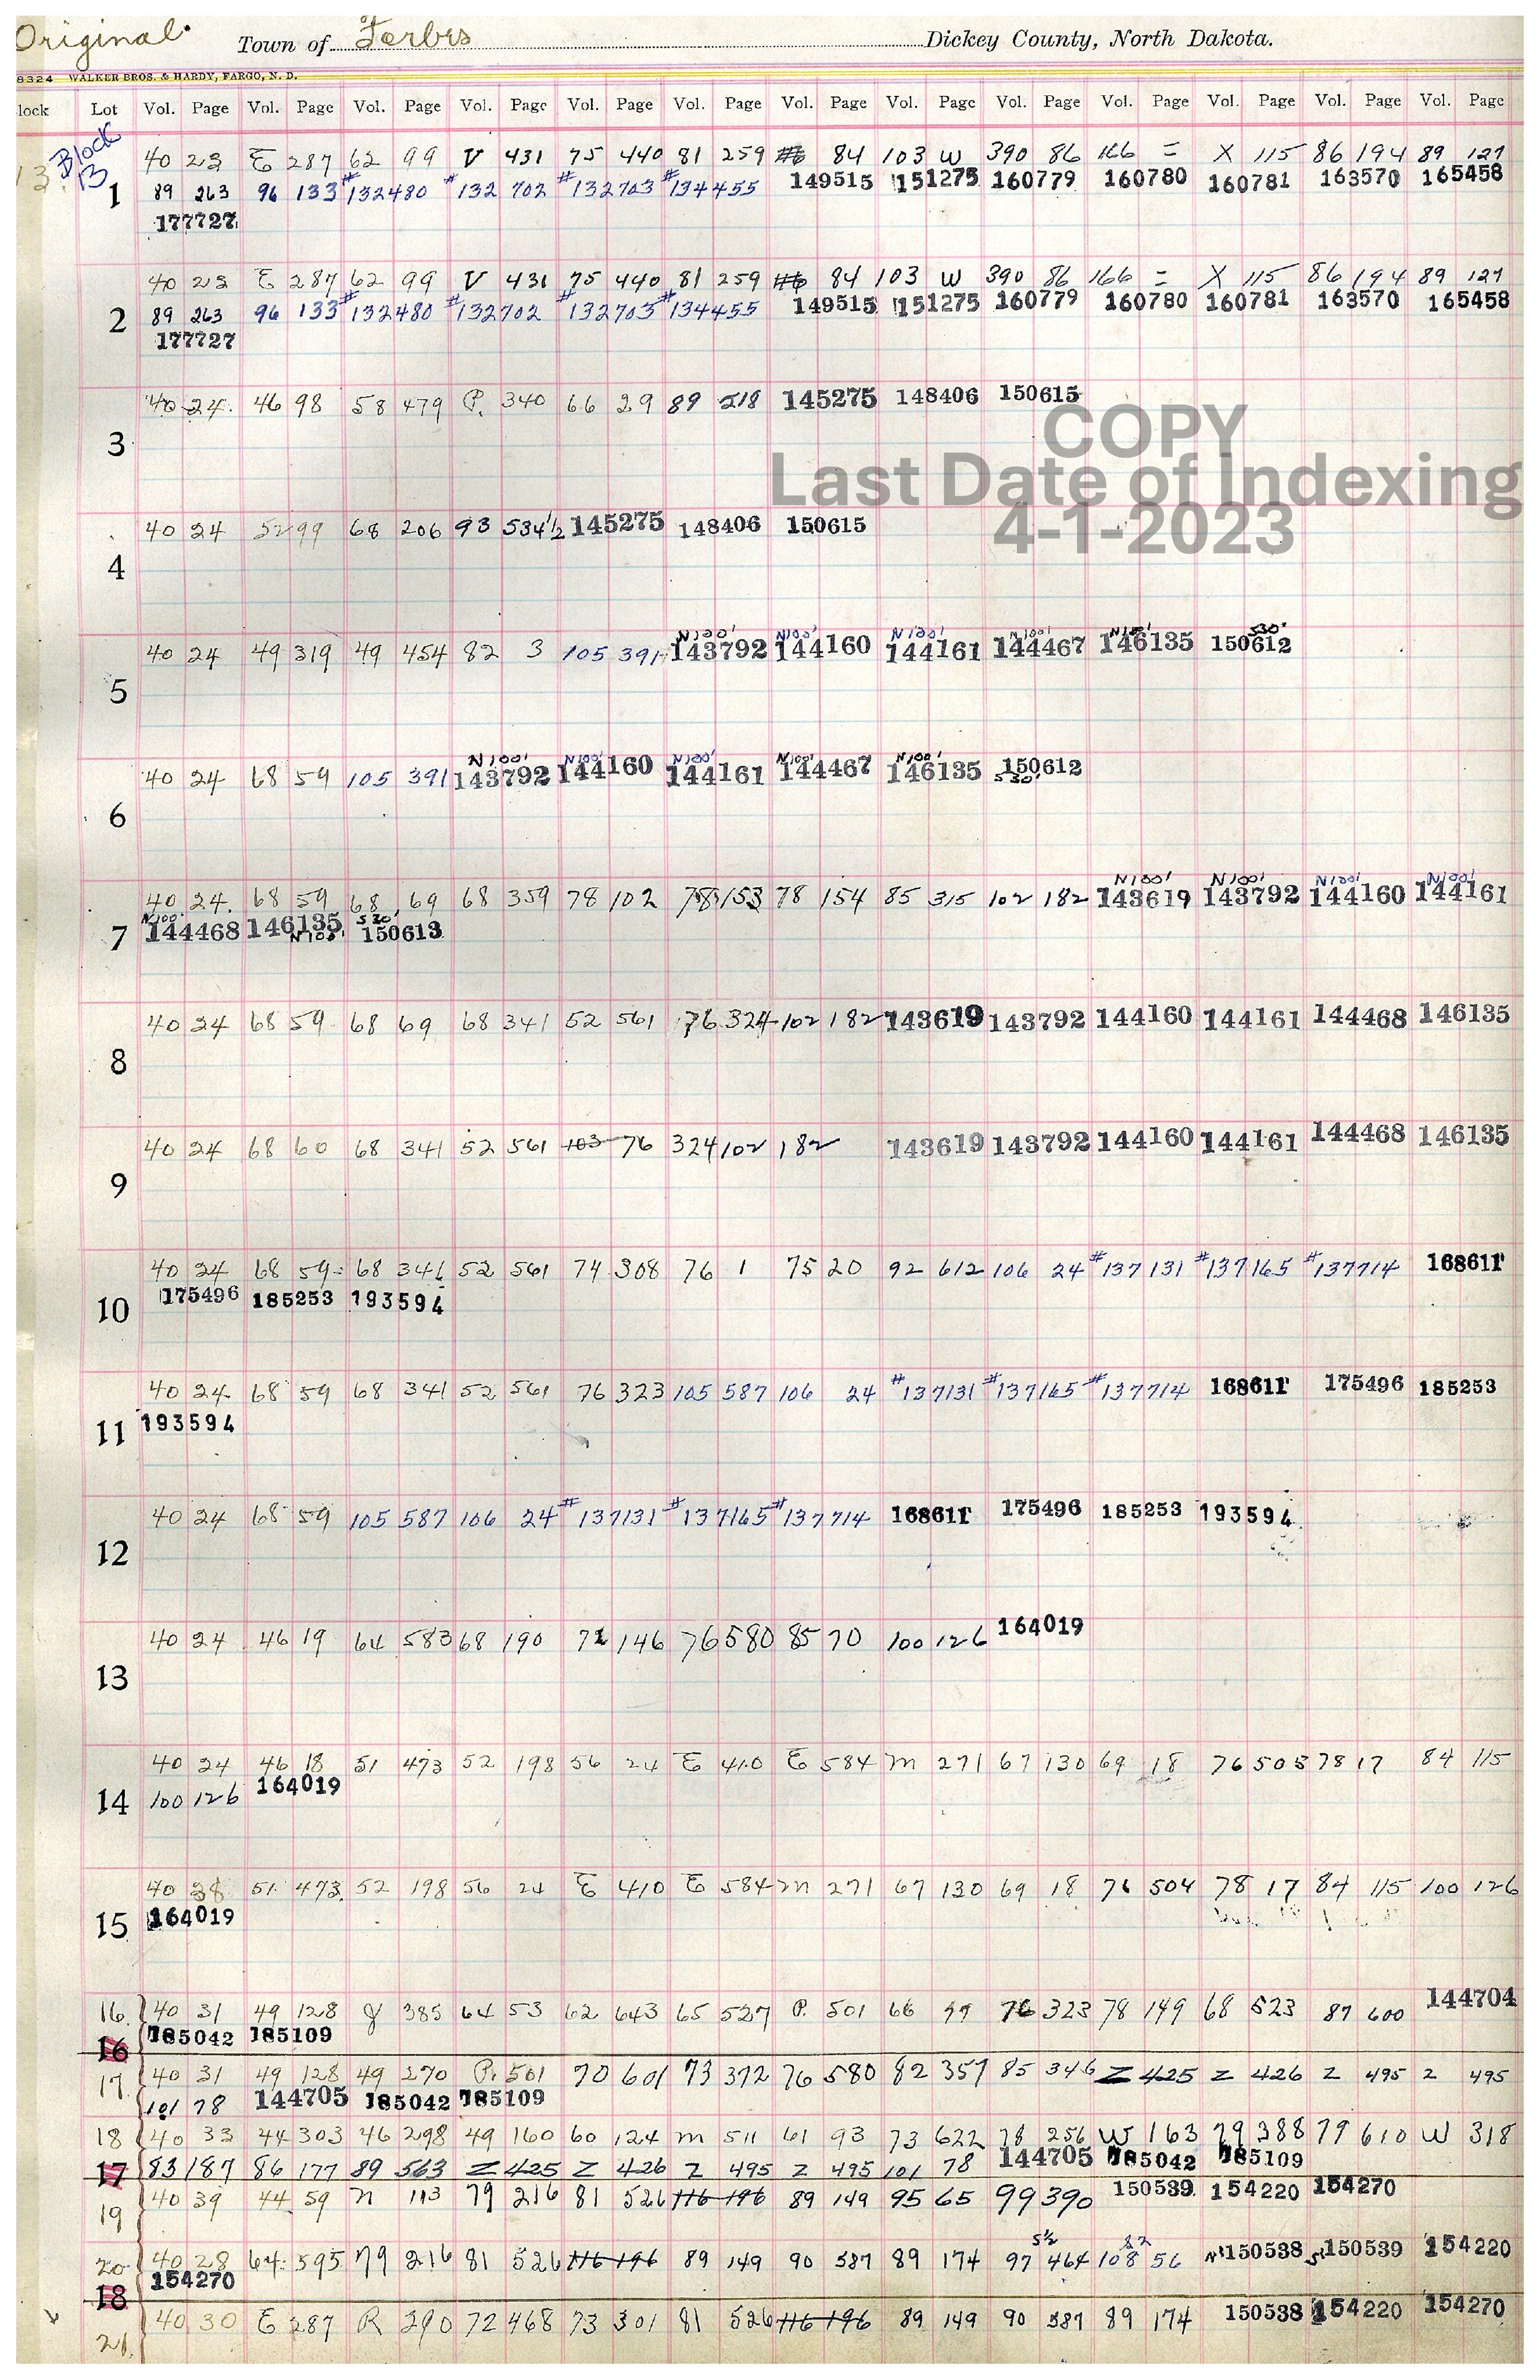 Original. Town of Forbes Dickey County, North Dakota.
8324 WALKER BROS. & HARDY, FARGO, N. D.
lock Lot Vol. Page Vol. Page Vol. Page Vol. Page Vol. Page Vol. Page Vol. Page Vol. Page Vol. Page Vol. Page Vol. Page Vol. Page Vol. Page
13. Block 13
40 23 E 287 62 99 V 431 75 440 81 259 84 103 W 390 86 166 = X 115 86 194 89 127
1 89 263 96 133 #132480 #132702 #132703 #134455 149515 151275 160779 160780 160781 163570 165458
177727
40 23 E 287 62 99 V 431 75 440 81 259 84 103 W 390 86 166 = X 115 86 194 89 127
2 89 263 96 133 #132480 #132702 #132703 #134455 149515 151275 160779 160780 160781 163570 165458
177727
40 24. 46 98 58 479 P. 340 66 29 89 518 145275 148406 150615
3
COPY
Last Date of Indexing
4-1-2023
40 24 52 99 68 206 93 534½ 145275 148406 150615
4
N100' N100' N100' N100' N100' S30'
40 24 49 319 49 454 82 3 105 391 143792 144160 144161 144467 146135 150612
5
N100' N100' N100' N100' N100'
40 24 68 59 105 391 143792 144160 144161 144467 146135 150612
S30'
6
N100' N100' N100' N100'
40 24. 68 59 68 69 68 359 78 102 78 153 78 154 85 315 102 182 143619 143792 144160 144161
N100' S30'
7 144468 146135 150613
N100'
40 24 68 59 68 69 68 341 52 561 76 324 102 182 143619 143792 144160 144161 144468 146135
8
40 24 68 60 68 341 52 561 103 76 324 102 182 143619 143792 144160 144161 144468 146135
9
40 24 68 59 68 341 52 561 74 308 76 1 75 20 92 612 106 24 #137131 #137165 #137714 168611
175496 185253 193594
10
40 24 68 59 68 341 52 561 76 323 105 587 106 24 #137131 #137165 #137714 168611 175496 185253
193594
11
40 24 68 59 105 587 106 24 #137131 #137165 #137714 168611 175496 185253 193594
12
40 24 46 19 64 583 68 190 71 146 76 580 85 70 100 126 164019
13
40 24 46 18 51 473 52 198 56 24 E 410 E 584 M 271 67 130 69 18 76 505 78 17 84 115
100 126 164019
14
40 28 51 473 52 198 56 24 E 410 E 584 M 271 67 130 69 18 76 504 78 17 84 115 100 126
164019
15
16. 40 31 49 128 385 64 53 62 643 65 527 P. 501 66 99 76 323 78 149 68 523 87 600 144704
16 185042 185109
17. 40 31 49 128 49 270 P. 501 70 601 73 372 76 580 82 357 85 346 Z 425 Z 426 Z 495 Z 495
101 78 144705 185042 185109
18 40 33 44 303 46 298 49 160 60 124 M 511 61 93 73 622 78 256 W 163 79 388 79 610 W 318
17 83 187 86 177 89 563 Z 425 Z 426 Z 495 Z 495 101 78 144705 185042 185109
19 40 39 44 59 N 113 79 216 81 526 116 196 89 149 95 65 99 390 150539 154220 154270
S½
20 40 28 64 595 79 216 81 526 116 196 89 149 90 587 89 174 97 464 108 56 150538 150539 154220
18 154270
21. 40 30 E 287 R 290 72 468 73 301 81 526 116 196 89 149 90 587 89 174 150538 154220 154270